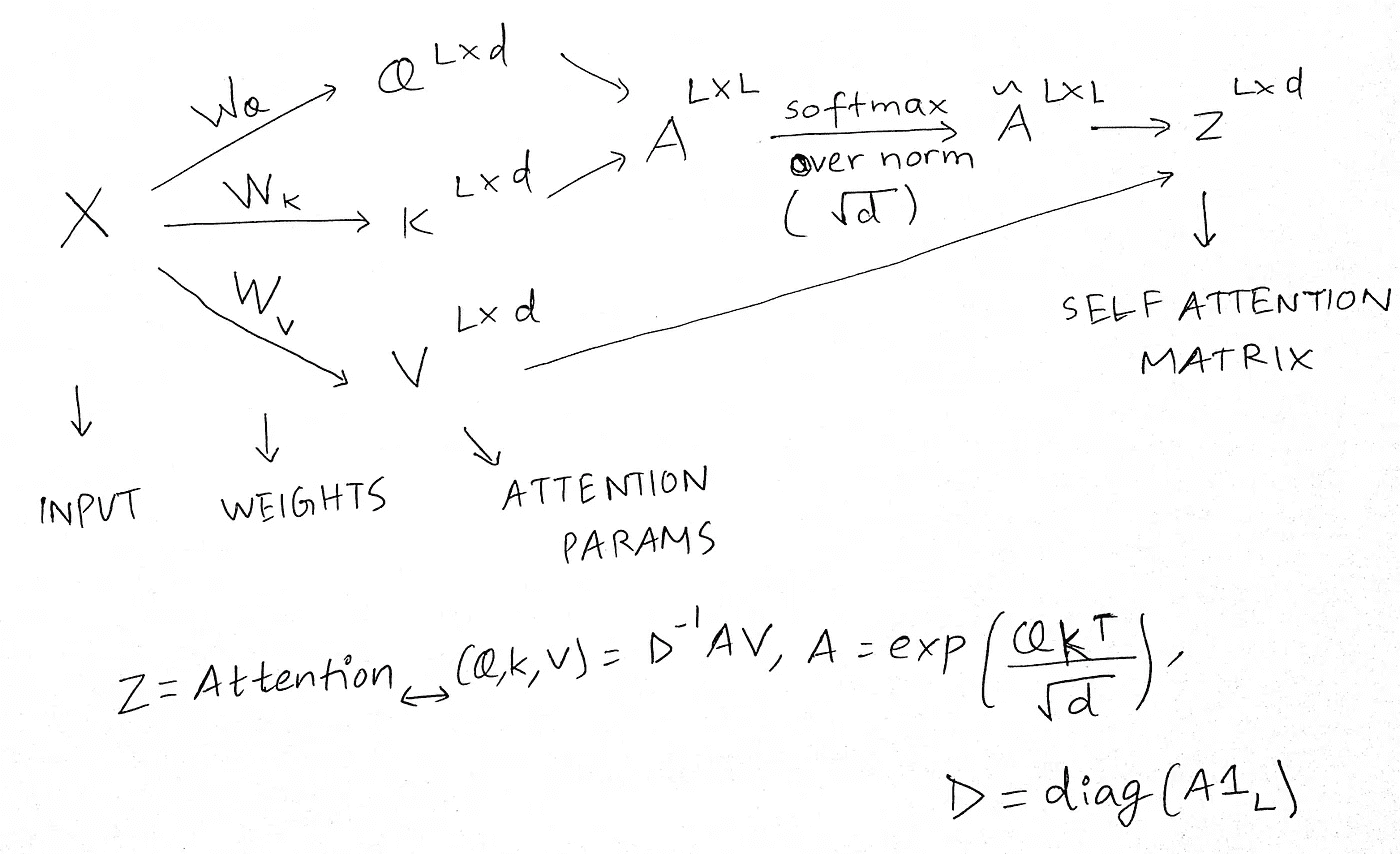 W_Q Q^{L×d}
A^{L×L} softmax over norm (√d) Â^{L×L} Z^{L×d}
X W_K K^{L×d}
W_V V^{L×d}
SELF ATTENTION
MATRIX
INPUT WEIGHTS ATTENTION
PARAMS
Z = Attention↔(Q,K,V) = D⁻¹AV, A = exp(QKᵀ/√d),
D = diag(A1_L)